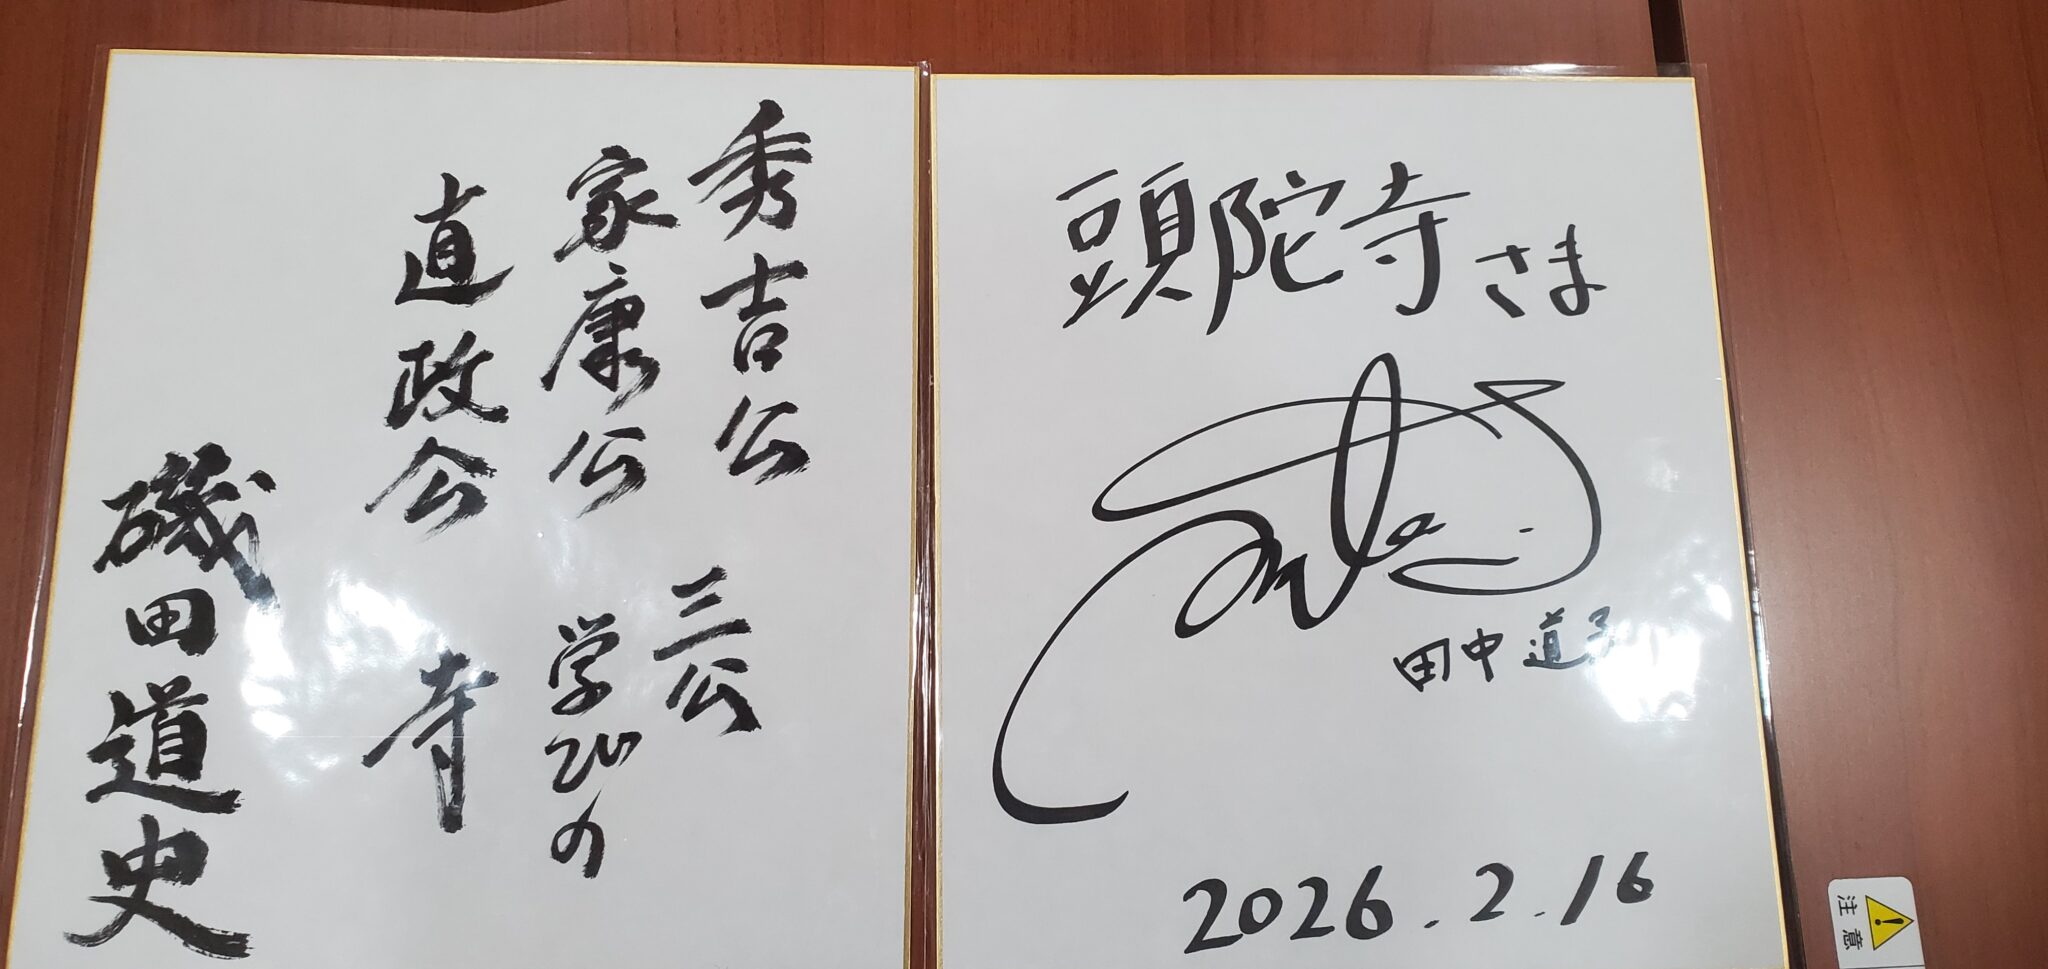 秀吉公
家康公
直政公
三公
学びの
寺
磯田道史
頭陀寺さま
田中道子
2026.2.16
注意